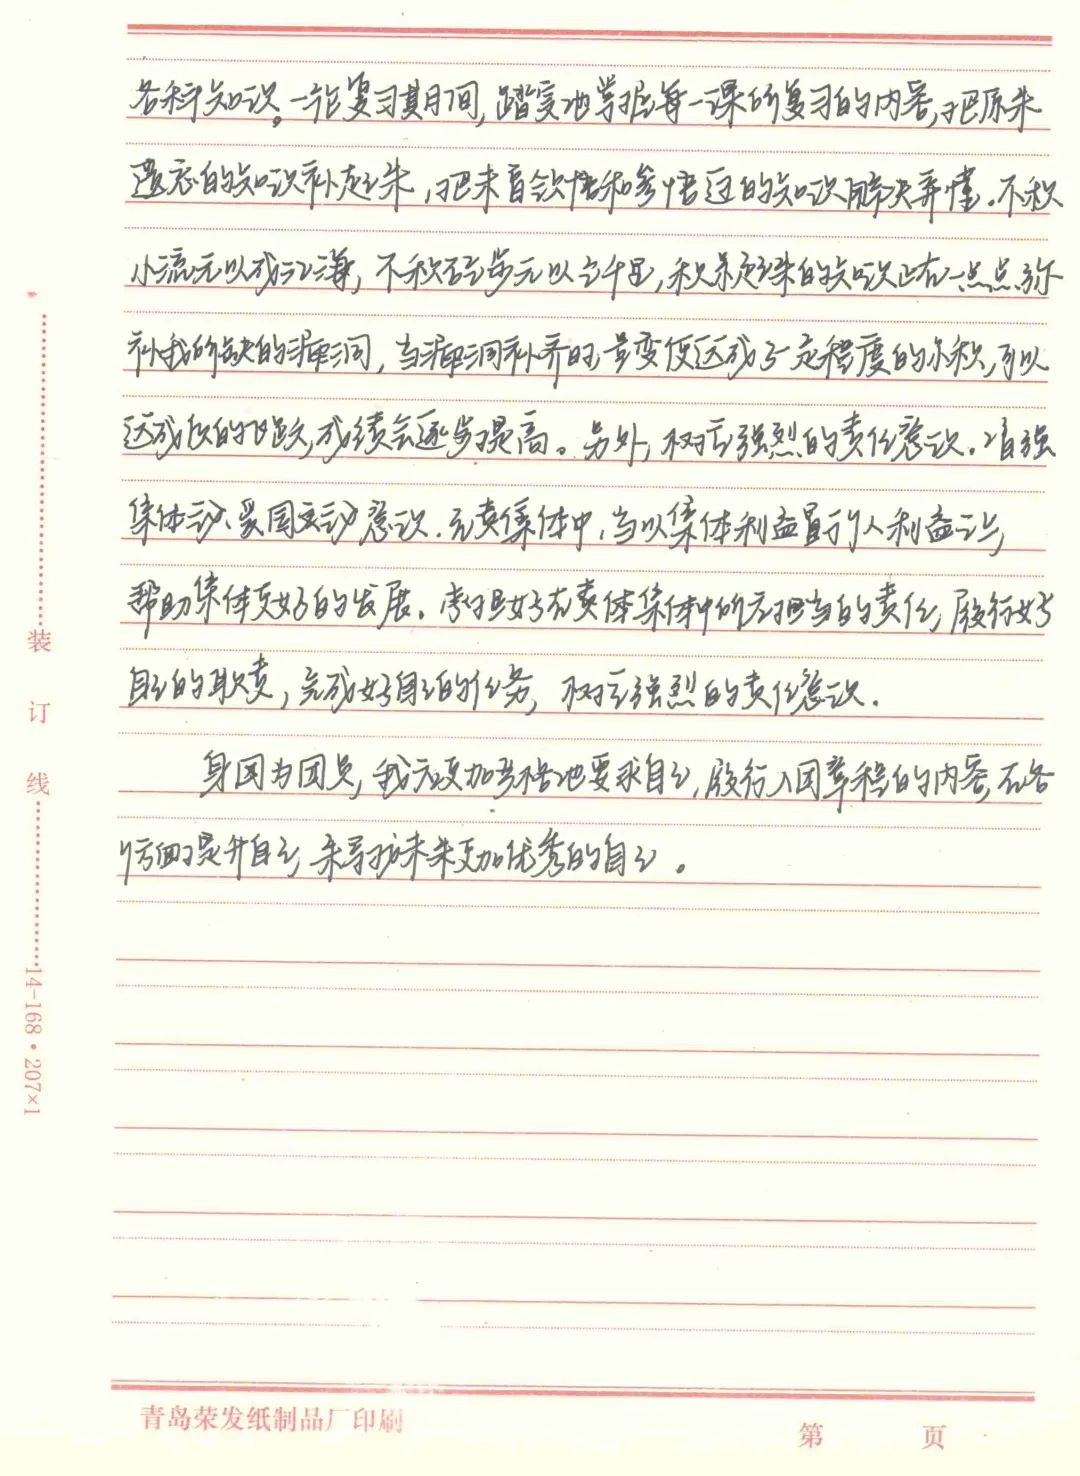 各科知识。一轮复习期间,踏实地掌握每一课所复习的内容,把原来
遗忘的知识补起来,把未曾领悟和参悟过的知识解决弄懂.不积
小流无以成江海,不积跬步无以至千里,积累起来的知识正在一点点弥
补我所缺的漏洞,当漏洞补齐时,量变便达成了一定程度的积,可以
达成质的飞跃,成绩会逐步提高。另外,树立强烈的责任意识.增强
集体主义、爱国主义意识.在集体中,当以集体利益置于个人利益之上,
帮助集体更好的发展.承担好在集体中所应担当的责任,履行好
自己的职责,完成好自己的任务,树立强烈的责任意识.
身因为团员,我应更加严格地要求自己,履行入团章程的内容,在各
方面提升自己,来寻找未来更加优秀的自己。
装
订
线
14-168·207×1
青岛荣发纸制品厂印刷
第 页